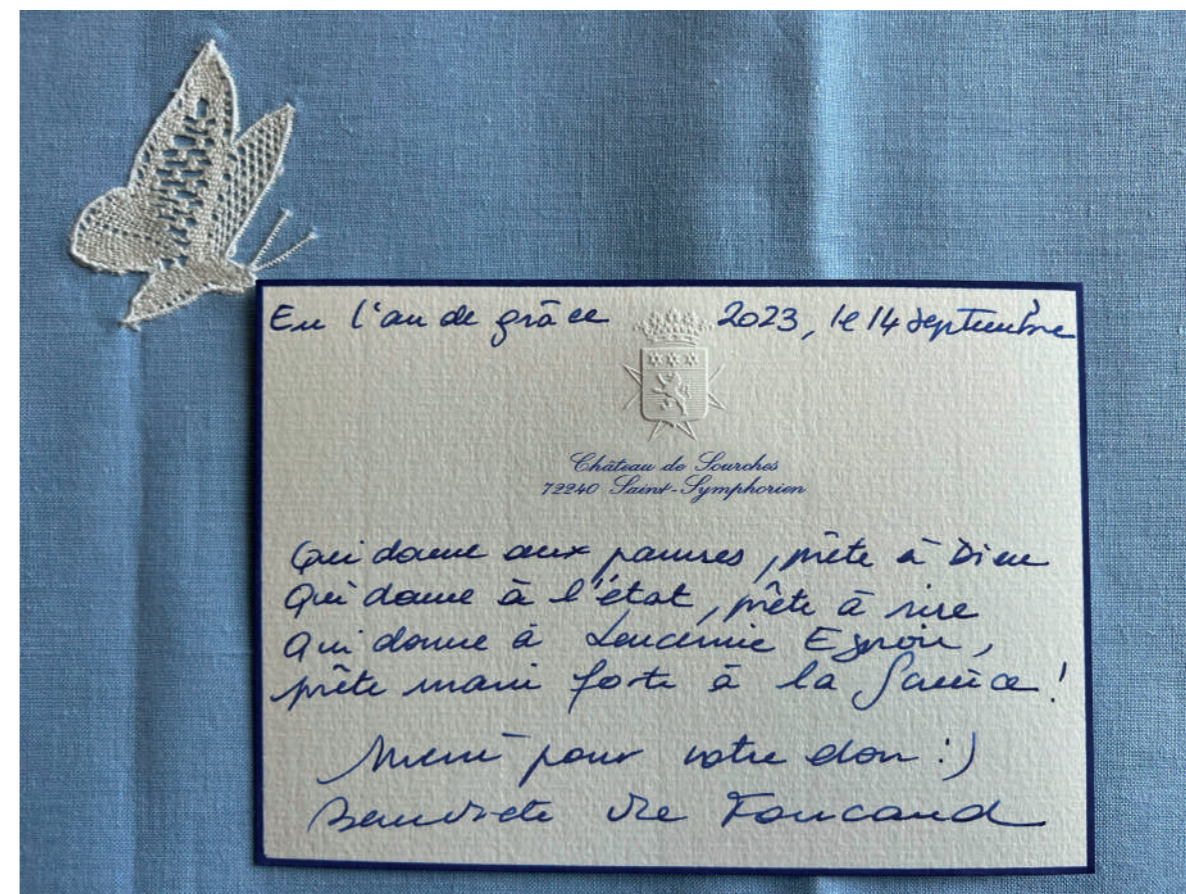 En l'an de grâce 2023, le 14 septembre
Château de Sourches
72240 Saint-Symphorien
Qui donne aux pauvres, prête à Dieu
Qui donne à l'état, prête à rire
Qui donne à Leucémie Espoir,
prête main forte à la Science !
Merci pour votre don :)
Bénédicte de Foucaud